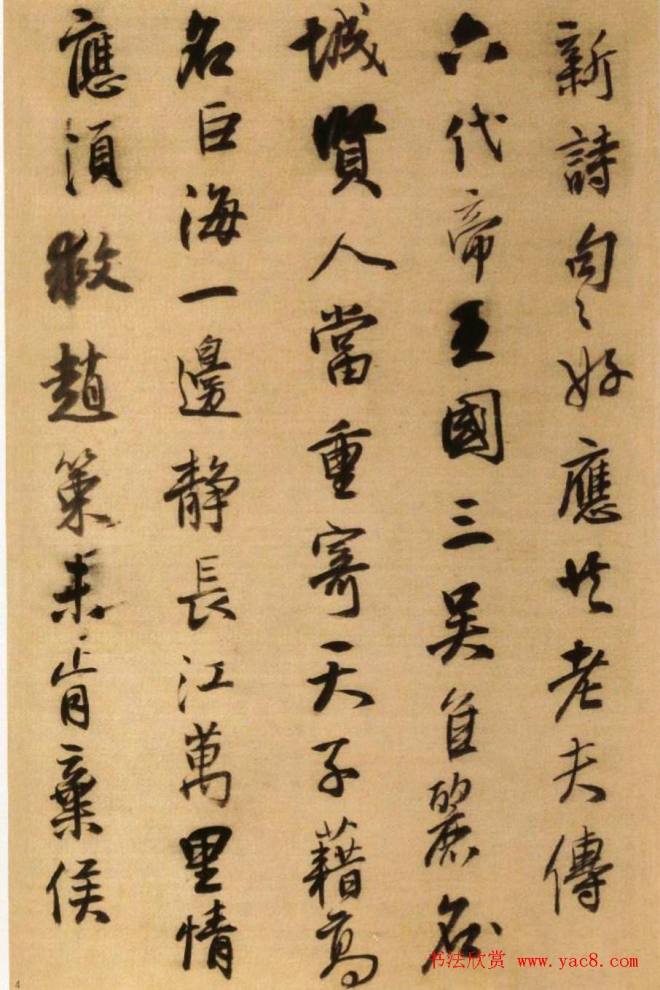 新詩句〻好應共老夫傳
六代帝王國三吳自麗名
城賢人當重寄天子藉高
名巨海一邊靜長江萬里情
應須救趙策未肯棄侯
4
书法欣赏 www.yac8.com